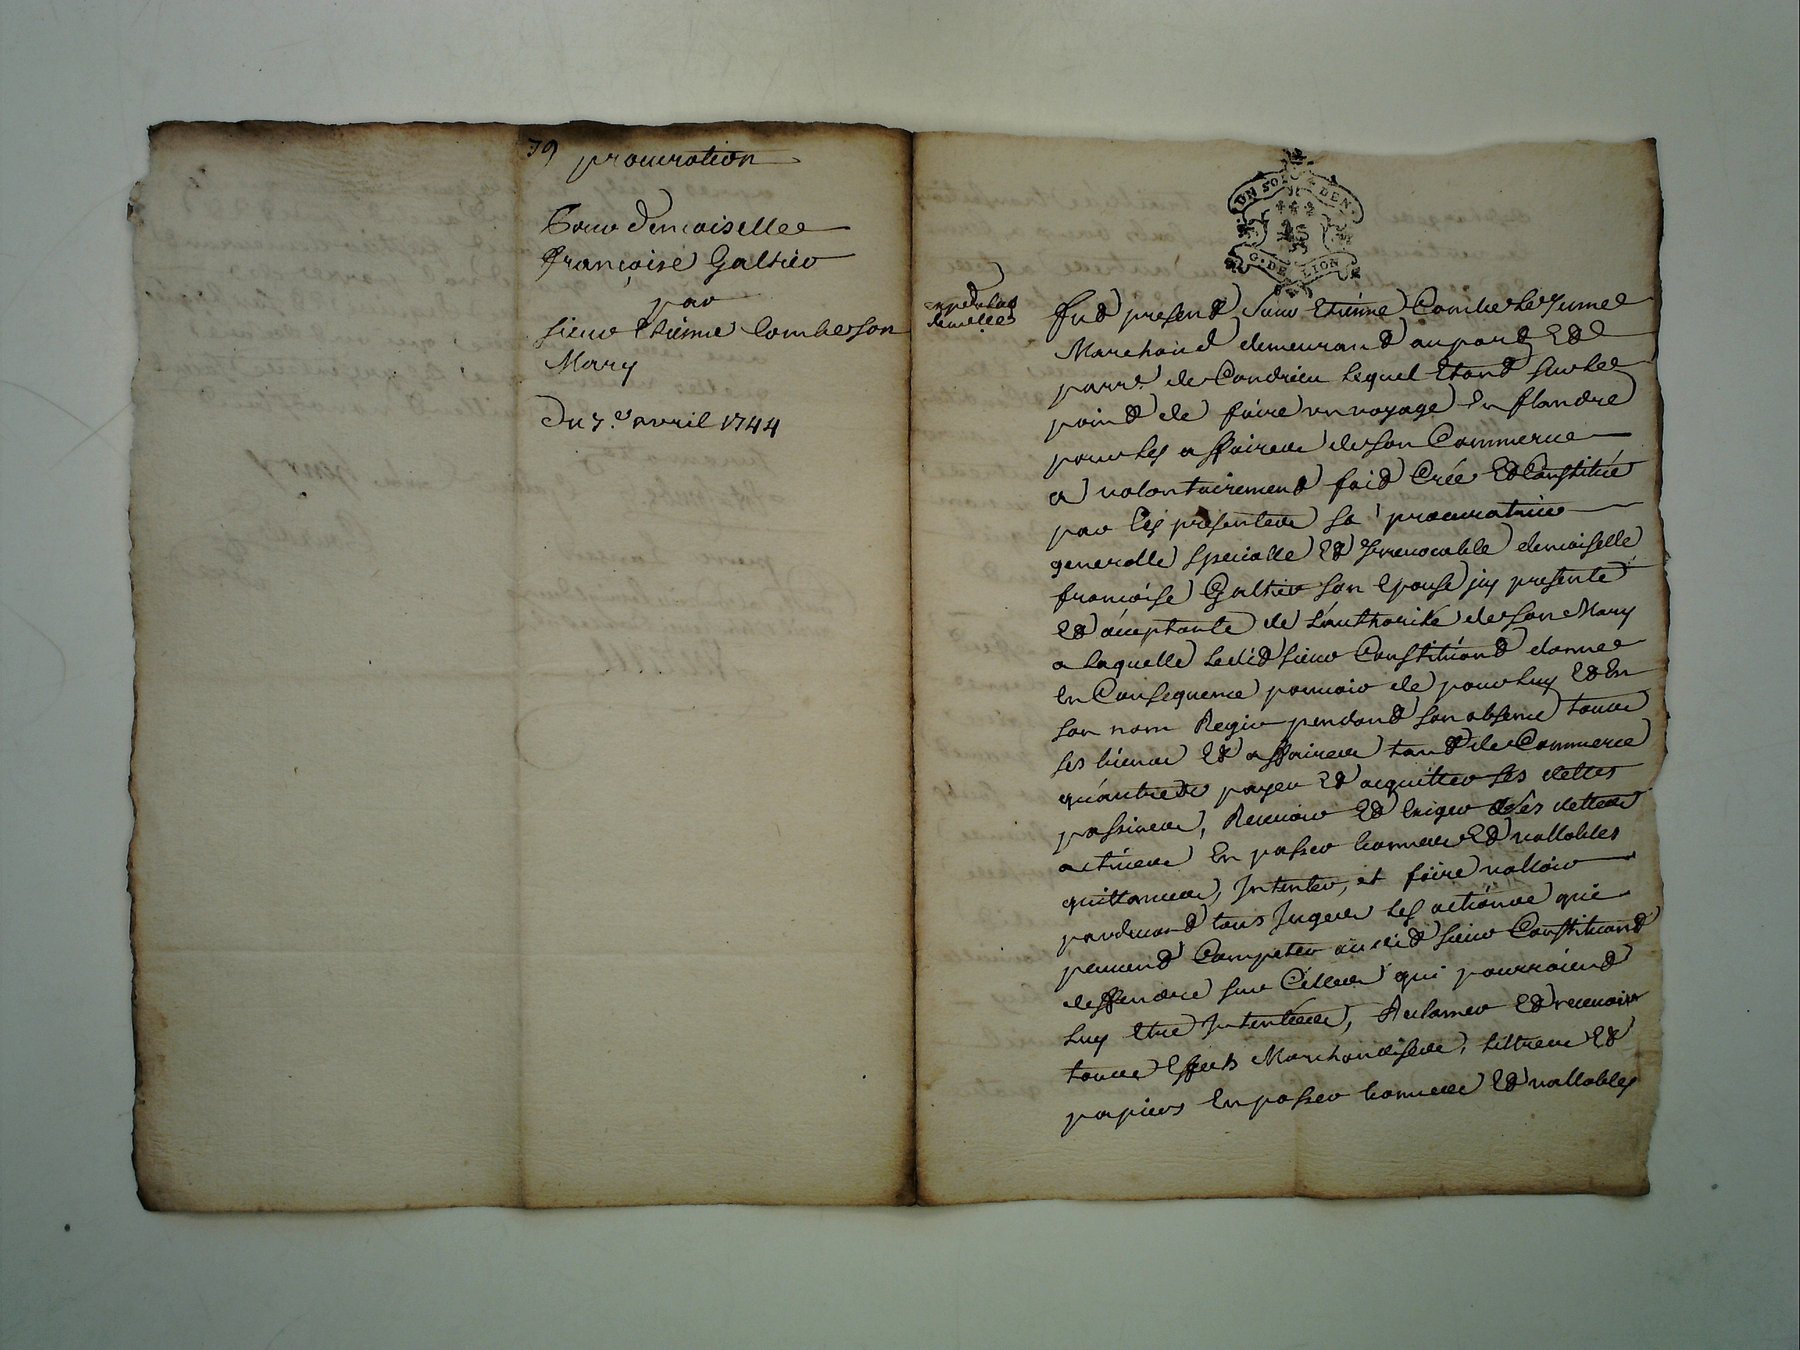 79 procuration
Pour demoiselle
françoise Galtier
par
sieur Etienne Combe son
Mary
Du 7.e avril 1744
UN SOL DEN.
G. DE LION
expedié lad
demoiselle
fut present sieur Etienne Combe le Jeune
Marchand demeurant au port Et
parr.e de Condrieu lequel Etant sur le
point de faire un voyage En flandre
pour les affaires de son Commerce
a volontairement fait Crée Et Constitué
par les presentes sa procuratrice
generalle specialle Et Irrevocable demoiselle
francoise Galtier son Epouse icy presente
Et acceptante de l'authorité de son Mary
a laquelle ledit sieur Constituant donne
En Consequence pouvoir de pour luy Et En
son nom Regir pendant son absence tous
ses biens Et affaires tant de Commerce
qu'autres payer Et acquitter ses dettes
passives, Recevoir Et Exiger les dettes
actives En passer bonnes Et vallables
quittances, Intenter, et faire valloir
pardevant tous Juges les actions qui
peuvent Competer audit sieur Constituant
deffendre sur Celles qui pourroient
luy Etre Intentées, Reclamer Et recevoir
tous Effets Marchandises, tiltres Et
papiers En passer bonnes Et vallables